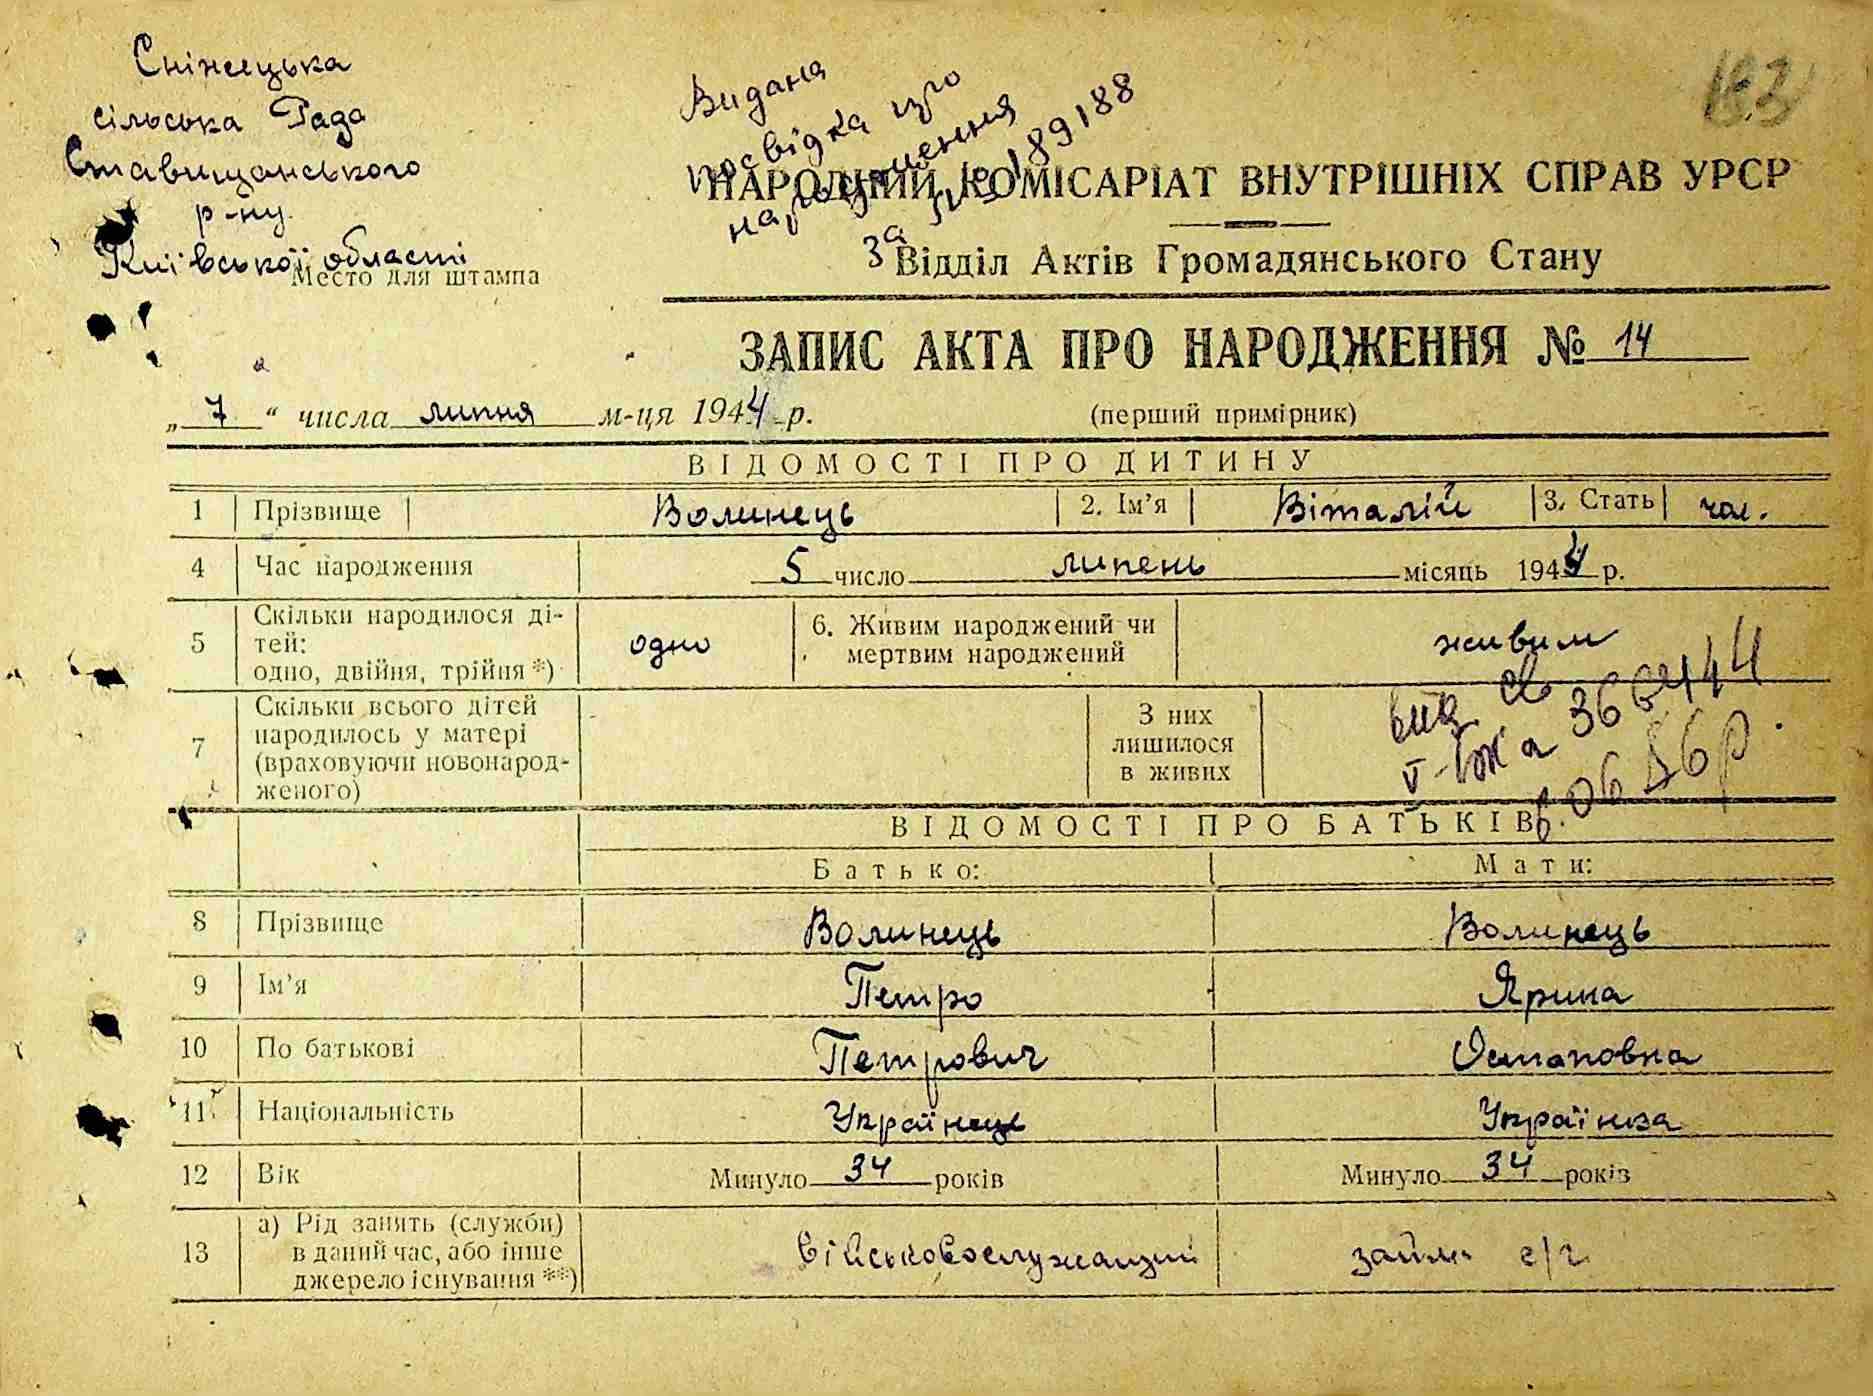 Сніжецька
сільська Рада
Ставищанського
р-ну.
Київської області
Место для штампа
Видана
посвідка про
народження
за № 189188
НАРОДНИЙ КОМІСАРІАТ ВНУТРІШНІХ СПРАВ УРСР
Відділ Актів Громадянського Стану
ЗАПИС АКТА ПРО НАРОДЖЕННЯ № 14
„ 7 “ числа липня м-ця 1944 р. (перший примірник)
ВІДОМОСТІ ПРО ДИТИНУ
1 Прізвище Волинець 2. Ім'я Віталій 3. Стать чол.
4 Час народження 5 число липень місяць 1944 р.
5 Скільки народилося ді-
тей:
одно, двійня, трійня *) одно 6. Живим народжений чи
мертвим народжений живим
7 Скільки всього дітей
народилось у матері
(враховуючи новонарод-
женого) З них
лишилося
в живих
вид. св
V-БК № 366444
6.06 86р.
ВІДОМОСТІ ПРО БАТЬКІВ
Батько: Мати:
8 Прізвище Волинець Волинець
9 Ім'я Петро Ярина
10 По батькові Петрович Остаповна
11 Національність Українець Українка
12 Вік Минуло 34 років Минуло 34 років
13 а) Рід занять (служби)
в даний час, або інше
джерело існування **) військовослужащий займ. с/г